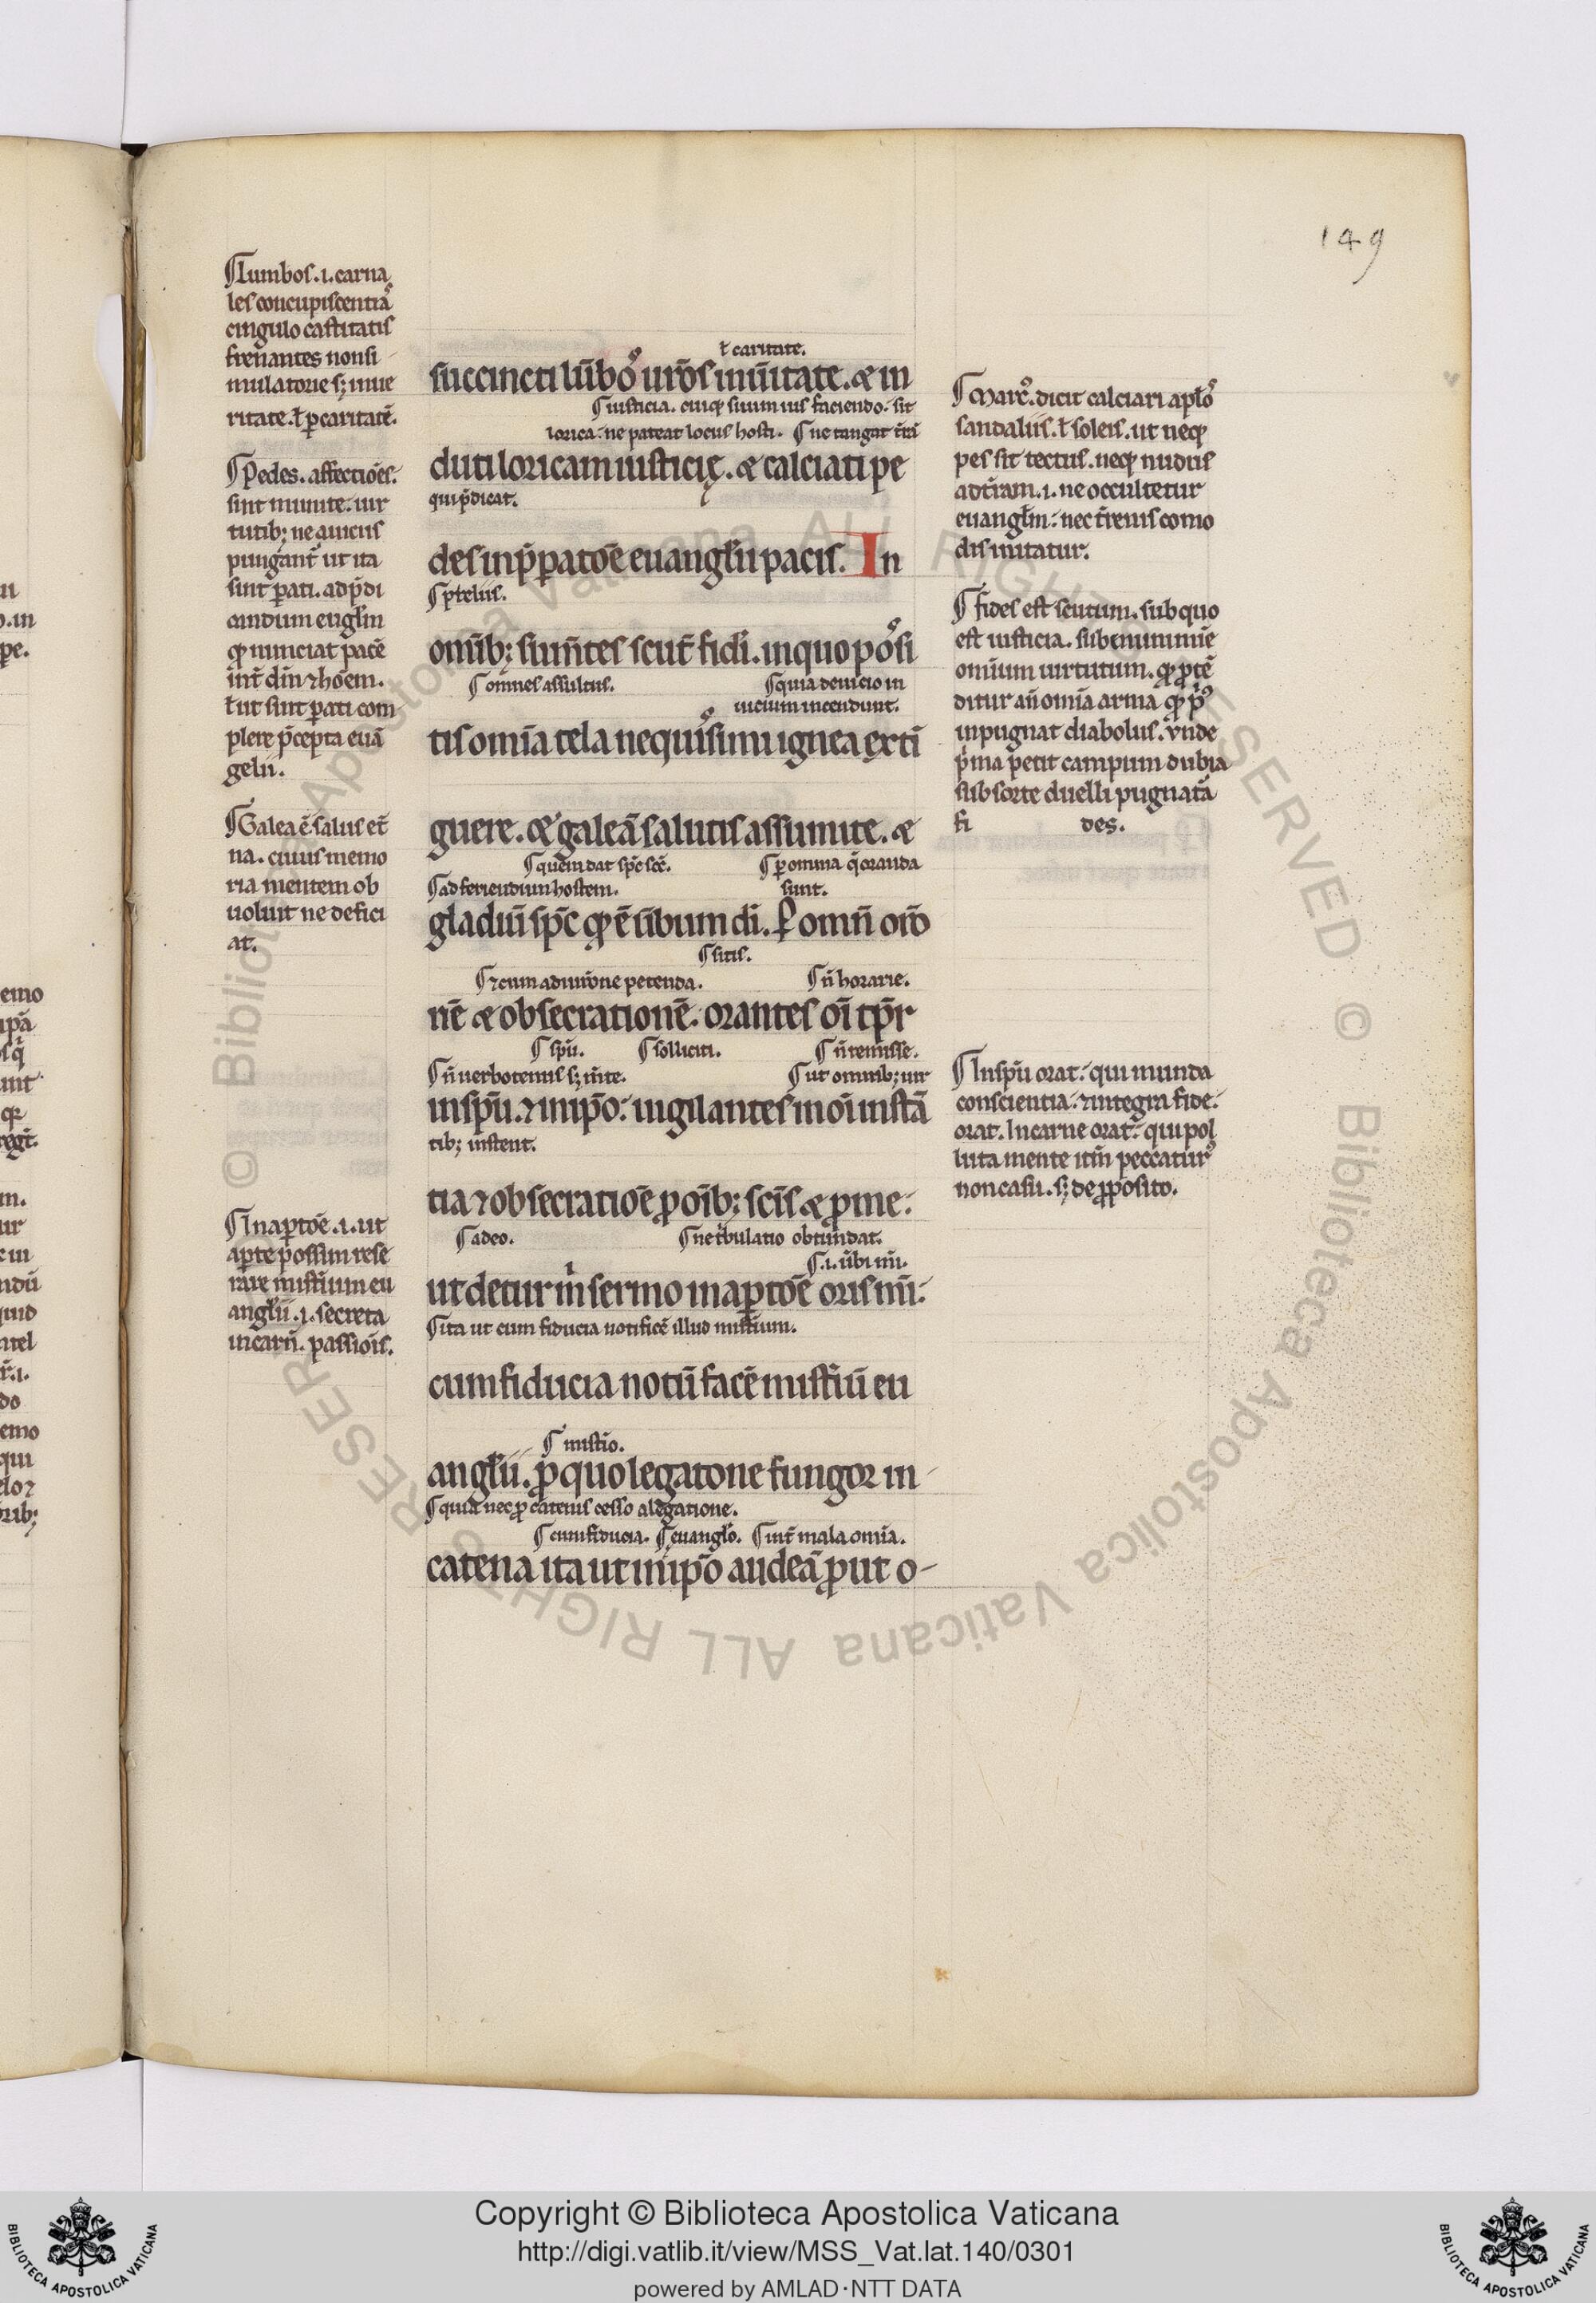 149
¶ Lumbos .i. carna
les concupiscentiaˢ
cingulo castitatis
frenantes non si
mulatorie sꝫ in ue
ritate. ł ꝑ caritatē.
¶ Pedes. affectiōes.
sint munite. uir
tutibꝫ ne a uiciis
pungant̄ ut ita
sint ꝑati. ad p̄di
candum euglm̄
qd̓ nunciat pacē
int̄ dm̄ ⁊ hoēm.
ł ut sint ꝑati com
plere p̄cepta euā
gelii.
¶ Galea ē. salus et̄
na. cuius memo
ria mentem ob
uoluit ne defici
at.
¶ In aꝑtōe .i. ut
aꝑte possim rese
rare mist̓ium eu
anglii .i. secreta
incarn̄. passiōis.
ł caritate.
succincti lūbo⁹ ur̄os in ūitate. & in
¶ iusticia. cuiqꝫ suum ius faciendo. sit
lorica. ne pateat locus hosti. ¶ ne tangat t̄rā
duti loricam iusticię. & calciati pe
qui p̄dicat.
des in p̄ꝑatōē euanglii pacis. In
¶ p̄teliis.
om̄ibꝫ sum̄tes scut̄ fidi. in quo po⁹si
¶ omnes assultus. ¶ quia de uicio in
uicium incendunt.
tis om̄ia tela nequi⁹simi ignea exti
guere. & galeā salutis assumite. &
¶ quem dat spc̄ sc̄s. ¶ ꝑ omnia q̄ oranda
¶ ad feriendum hostem. sunt.
gladiū spc̄ qd̓ ē ūbum di. ꝑ omn̄ orō
¶ sitis.
¶ ⁊ cum adiurōne petenda. ¶ n̄ horarie.
nē & obsecrationē. orantes oī tp̄r
¶ spū. ¶ solliciti. ¶ n̄ remisse.
¶ n̄ uerbotenus sꝫ m̄te. ¶ ut omnibꝫ uir
in spū. ⁊ in ipō. uigilantes in oī instā
tibꝫ instent.
tia ⁊ obsecratiōē ꝓ oībꝫ sc̄is & ꝓ me.
¶ a deo. ¶ ne t̓bulatio obtundat.
¶ .i. ubi mi.
ut detur m̓ sermo in aꝑtōē oris mi.
¶ ita ut cum fiducia notificē illud mist̓ium.
cum fiducia notū facē mist̓iū eu
¶ mist̓io.
anglii. ꝓ quo legatone fungor in
¶ quia nec ꝓ catenis cesso a legatione.
¶ cum fiducia. ¶ euanglō. ¶ int̄ mala om̄ia.
catena ita ut in ipō audeā ꝓut o
¶ Marc⁹. dicit calciari aplo⁹
sandaliis. ł soleis. ut neqꝫ
pes sit tectus. neqꝫ nudus
ad t̄ram .i. ne occultetur
euanglm̄. nec t̄renis como
dis innitatur.
¶ Fides est scutum. sub quo
est iusticia. sub munimīe
omnium uirtutum. qd̓ ꝓtē
ditur an̄ om̄ia arma qd̓ p⁹
inpugnat diabolus. vnde
p̓ma petit campum dubia
sub sorte duelli pugnatā
fi des.
¶ In spū orat. qui munda
conscientia. ⁊ integra fide.
orat. In carne orat. qui pol
luta mente itm̄ peccatur⁹
non casu. sꝫ de ꝓposito.
Copyright © Biblioteca Apostolica Vaticana
http://digi.vatlib.it/view/MSS_Vat.lat.140/0301
powered by AMLAD·NTT DATA
BIBLIOTECA APOSTOLICA VATICANA
BIBLIOTECA APOSTOLICA VATICANA
© Biblioteca Apostolica Vaticana ALL RIGHTS RESERVED © Biblioteca Apostolica Vaticana ALL RIGHTS RESERVED